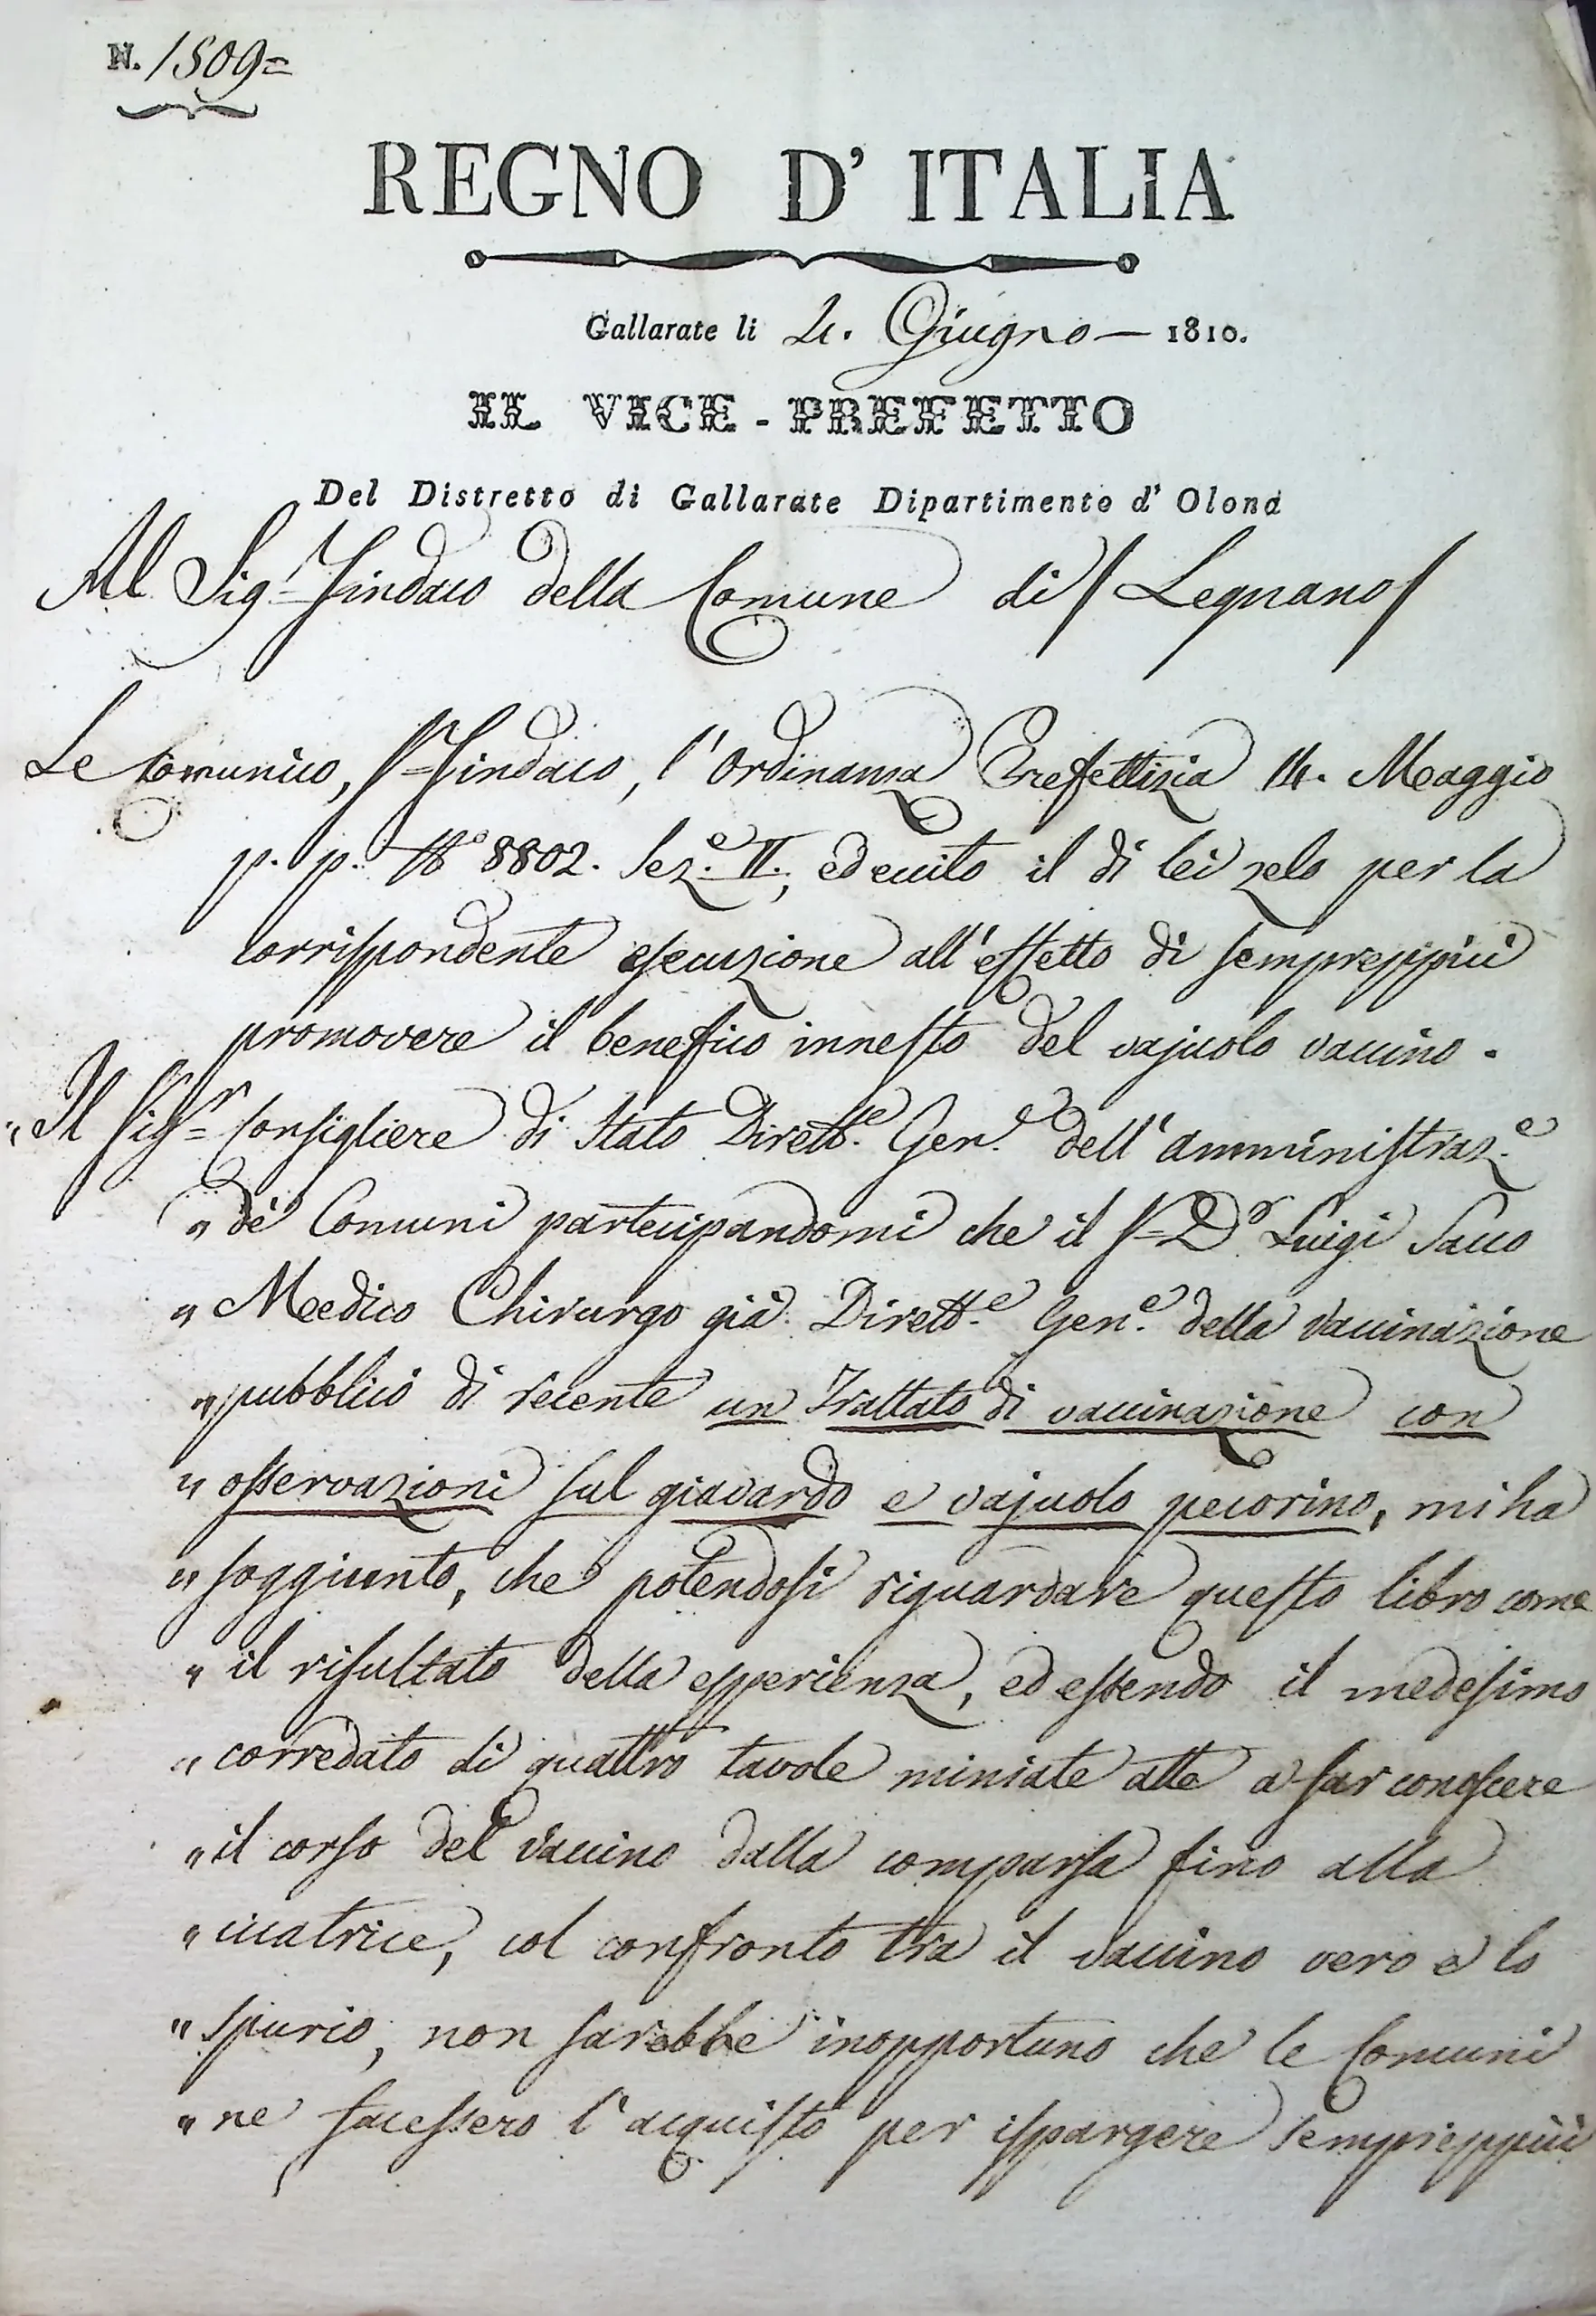 N. 1509=
REGNO D' ITALIA
Gallarate li 4. Giugno — 1810.
IL VICE - PREFETTO
Del Distretto di Gallarate Dipartimento d' Olona
Al Sig.r Sindaco della Comune di / Legnano /
Le comunico, Sr Sindaco, l'ordinanza Prefettizia 14. Maggio
p. p. No 8802. Sez.e II., ed eccito il di lei zelo per la
corrispondente esecuzione all'effetto di sempreppiù
promovere il benefico innesto del vajuolo vaccino.
" Il Sigr Consigliere di Stato Dirett.e Gen.e dell'amministraz.e
" de' Comuni partecipandomi che il Sr Dr Luigi Sacco
" Medico Chirurgo già Dirett.e Gen.e della vaccinazione
" pubblicò di recente un Trattato di vaccinazione con
" osservazioni sul giavardo e vajuolo pecorino, mi ha
" soggiunto, che potendosi riguardare questo libro come
" il risultato della esperienza, ed essendo il medesimo
" corredato di quattro tavole miniate atte a far conoscere
" il corso del vaccino dalla comparsa fino alla
" cicatrice, col confronto tra il vaccino vero e lo
" spurio, non sarebbe inopportuno che le Comuni
" ne facessero l'acquisto per ispargere sempreppiù